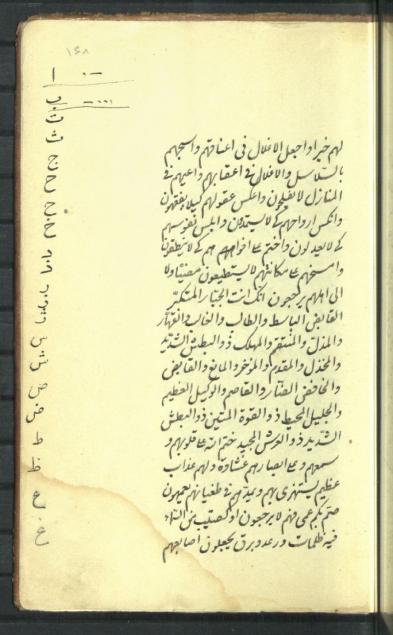 ۱۶۸
لهم خیرا واجعل الاغلال فی اعناقهم واسحبهم
بالسلاسل والاغلال فی اعقابهم واعمهم فی
المنازل لا یفلحون واعکس عقولهم کیلا یفقهون
وانکس ارواحهم کی لا یستمدون والبس نفوسهم
کی لا یعیدلون واختم علی افواههم هم کی لا ینطقون
وامسخهم علی مکانتهم لا یستطیعون مضیا ولا
الی اهلهم یرجعون انک انت الجبار المتکبر
القابض الباسط والطالب والغالب والقهار
والمذل والمنتقم والمهلک ذو البطش الشدید
والمخذل والمقدم والمؤخر والمانع والقابض
والخافض الضار والقاصم والوکیل العظیم
والجلیل المحیط ذو القوة المتین ذو البطش
الشدید ذو العرش المجید ختم الله علی قلوبهم و
سمعهم وعلی ابصارهم غشاوة ولهم عذاب
عظیم یستهزئ بهم ویمدهم فی طغیانهم یعمهون
صم بکم عمی فهم لا یرجعون او کصیب من السماء
فیه ظلمات ورعد وبرق یجعلون اصابعهم
ا
ب
ت
ث
ج
ح
خ
د
ذ
ر
ز
س
ش
ص
ض
ط
ظ
ع
غ